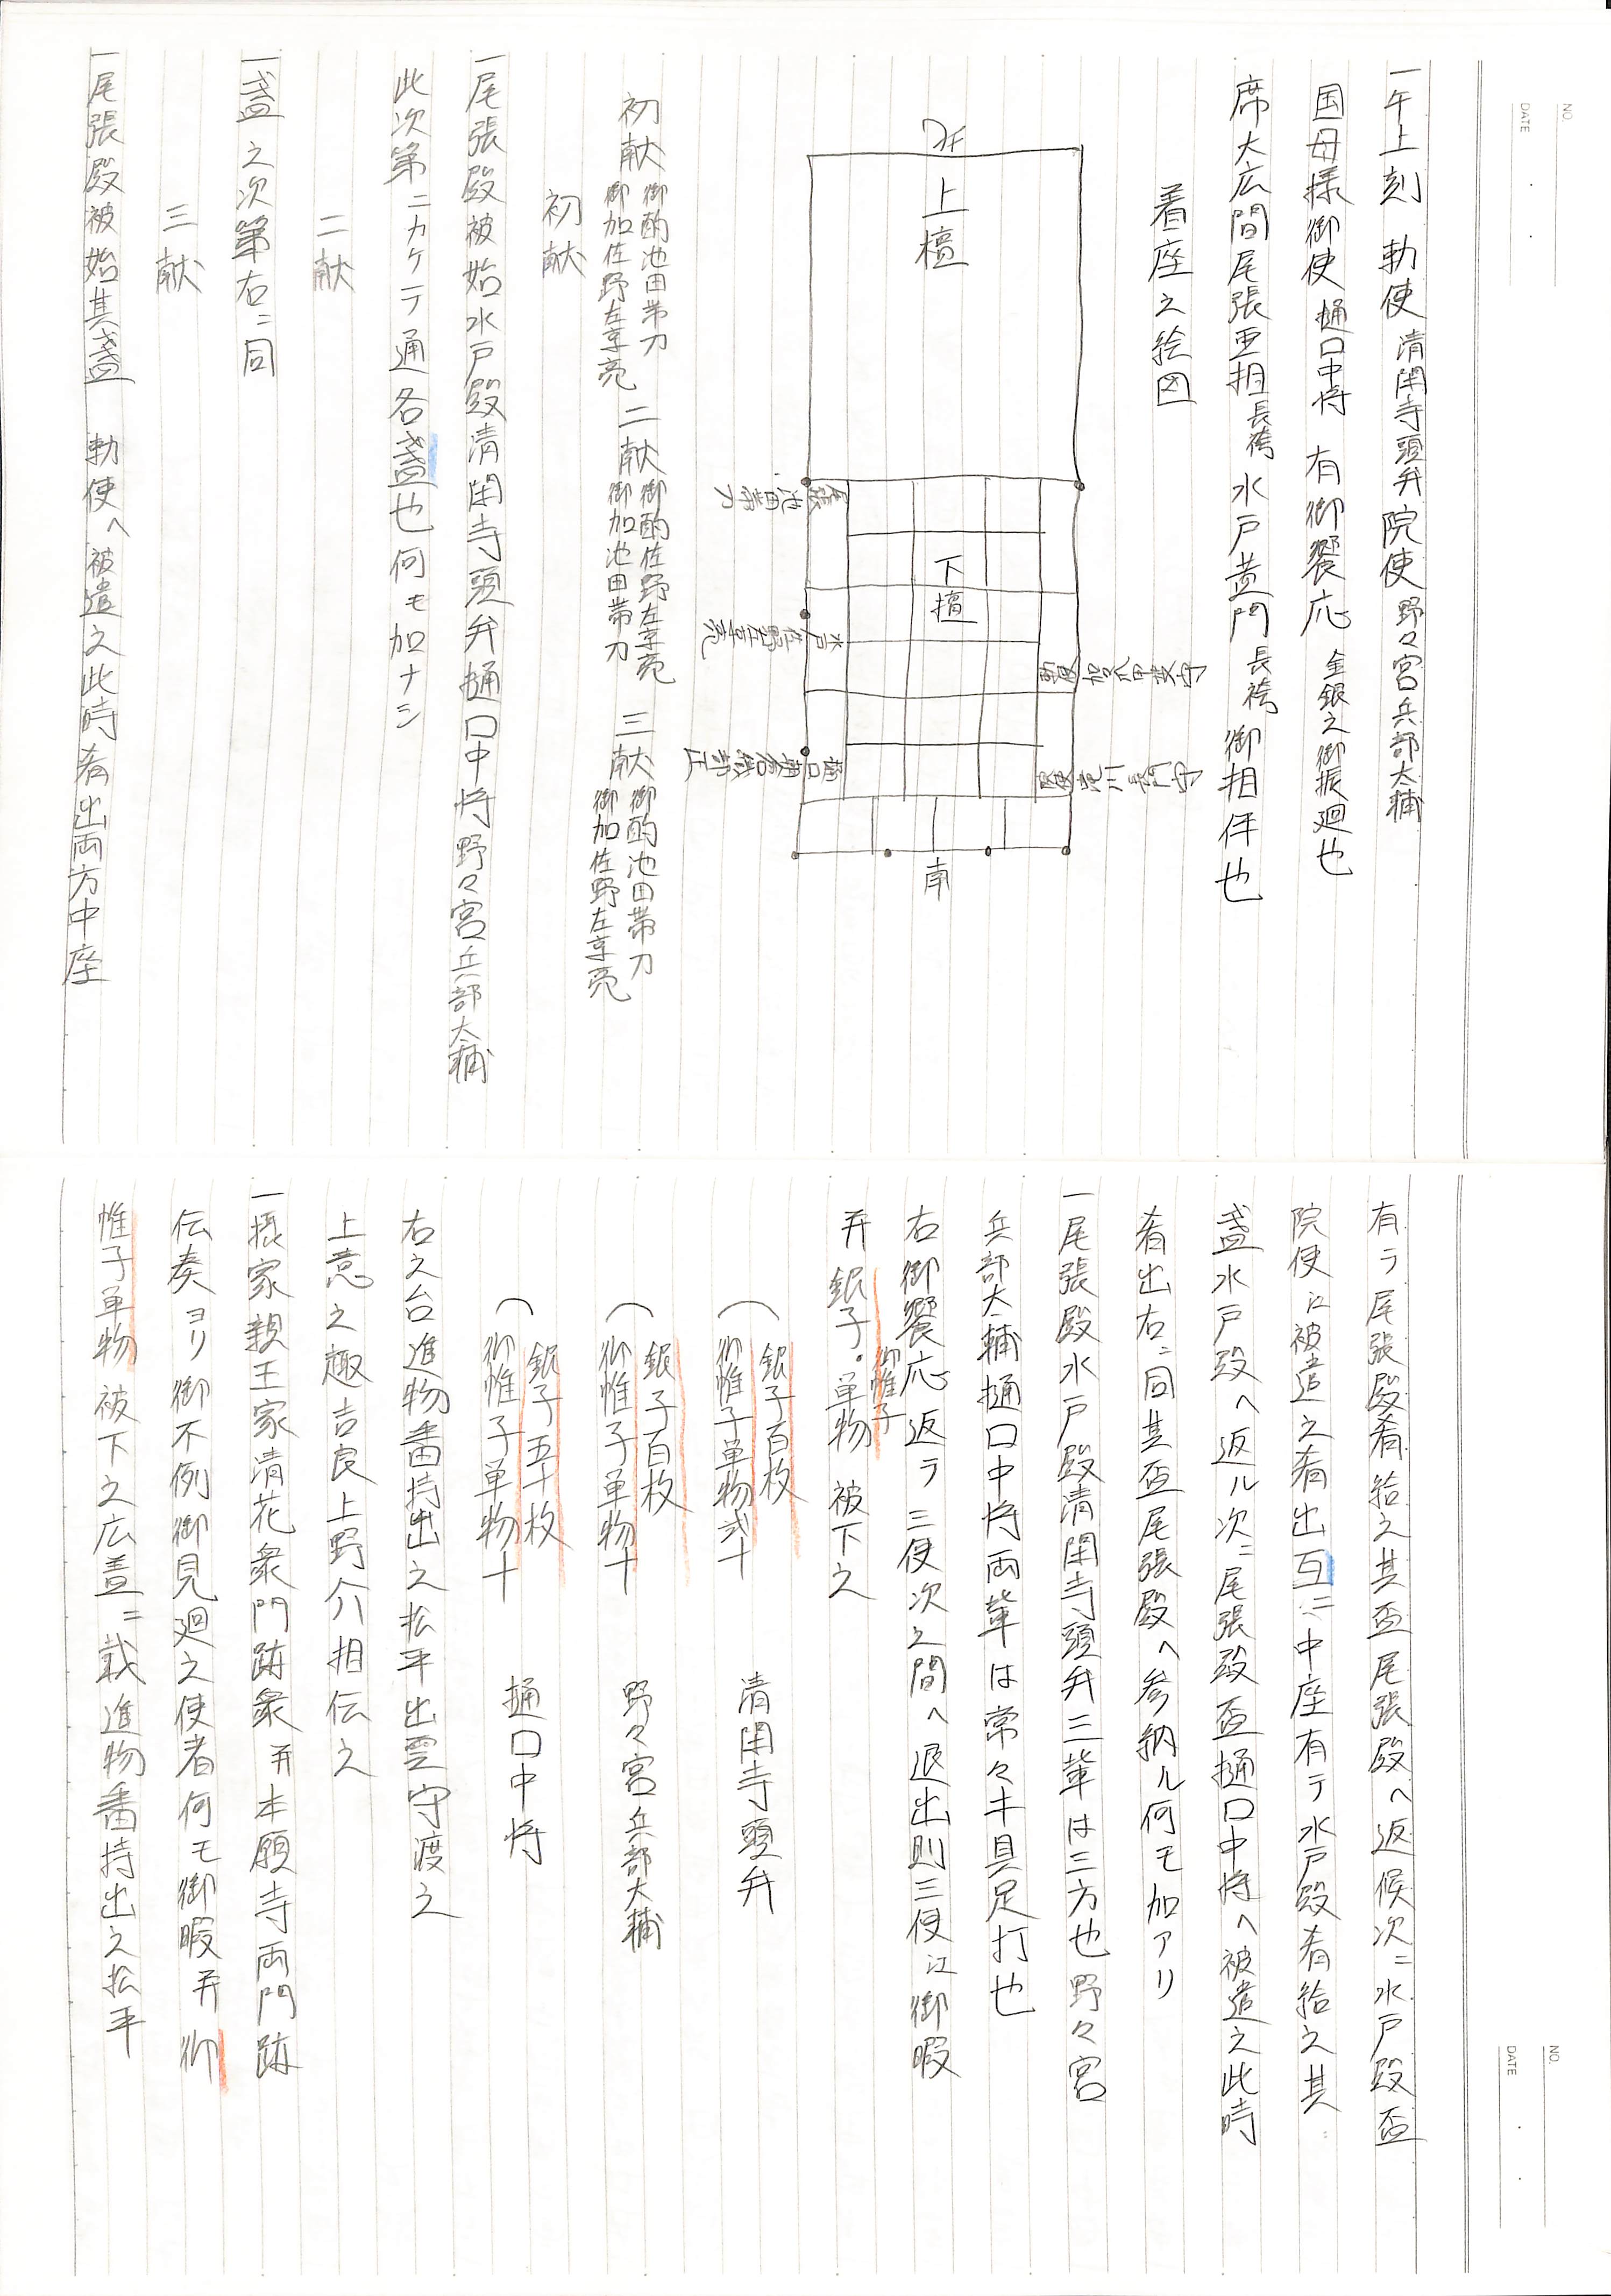 NO.
DATE
一午上刻 勅使 清閑寺頭弁 院使 野々宮兵部大輔
国母様御使 樋口中将 有御饗応 金銀之御振廻也
席大広間尾張亜相 長袴 水戸黄門 長袴 御相伴也
着座之絵図
北
上檀
下檀
尾張 池田帯刀
水戸 佐野左京亮
樋口
南
初献 御酌池田帯刀 御加佐野左京亮 二献 御酌佐野左京亮 御加池田帯刀 三献 御酌池田帯刀 御加佐野左京亮
初献
一尾張殿被始水戸殿清閑寺頭弁樋口中将野々宮兵部大輔
此次第ニカケテ通各盞也何モ加ナシ
二献
一盞之次第右ニ同
三献
一尾張殿被始其盞 勅使へ被遣之此時肴出両方中座
NO.
DATE
有テ尾張殿肴給之其盃尾張殿へ返候次ニ水戸殿盃
院使江被遣之肴出互ニ中座有テ水戸殿肴給之其
盞水戸殿へ返ル次ニ尾張殿盃樋口中将へ被遣之此時
肴出右ニ同其盃尾張殿へ参納ル何モ加アリ
一尾張殿水戸殿清閑寺頭弁三輩は三方也野々宮
兵部大輔樋口中将両輩は常々キ具足打也
右御饗応返テ三使次之間へ退出則三使江御暇
并銀子・御帷子単物 被下之
銀子百枚
御帷子単物弐十 清閑寺頭弁
銀子百枚
御帷子単物十 野々宮兵部大輔
銀子五十枚
御帷子単物十 樋口中将
右之台進物番持出之松平出雲守渡之
上意之趣吉良上野介相伝之
一摂家親王家清花衆門跡衆并本願寺両門跡
伝奏ヨリ御不例御見廻之使者何モ御暇并御
帷子単物被下之広蓋ニ載進物番持出之松平